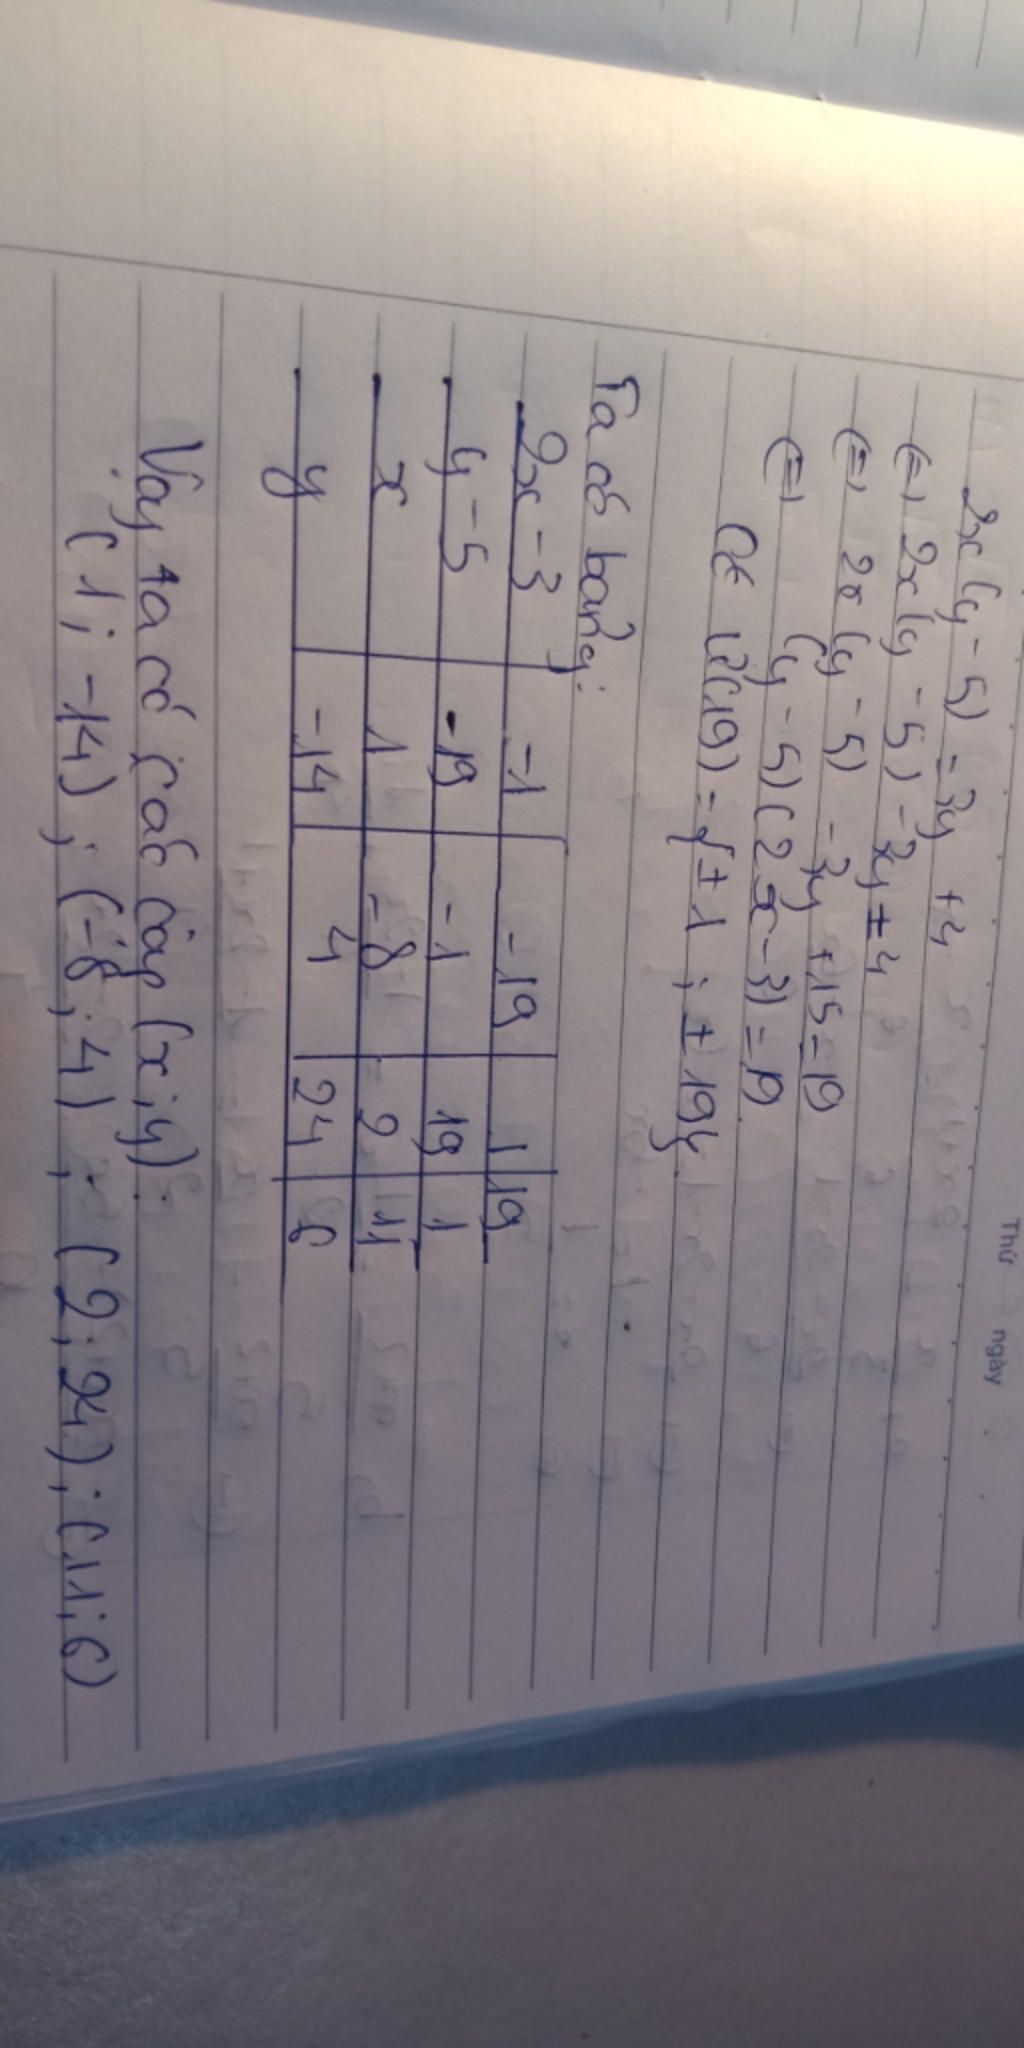 Thứ ngày
2x(y-5) = 3y +4
(=) 2x(y-5) - 3y = 4
(=) 2x(y-5) - 3y + 15 = 19
(=) (y-5)(2x-3) = 19
(19) = {±1; ±19}
Ta có bảng:
2x-3 -1 -19 1 19
y-5 -19 -1 19 1
x 1 -8 2 11
y -14 4 24 6
Vậy ta có các cặp (x;y):
(1; -14); (-8; 4); (2; 24); (11; 6)